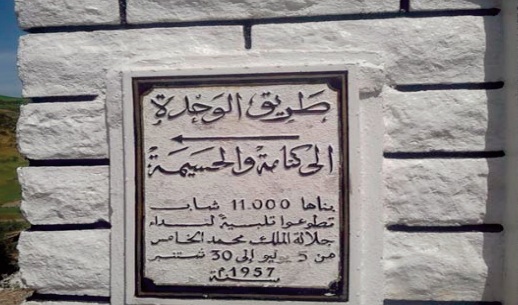 طريق الوحدة
الى كتامة والحسيمة
بناها 11.000 شاب
تطوعوا تلبية لنداء
جلالة الملك محمد الخامس
من 5 يوليو الى 30 شتنبر
سنة 1957م